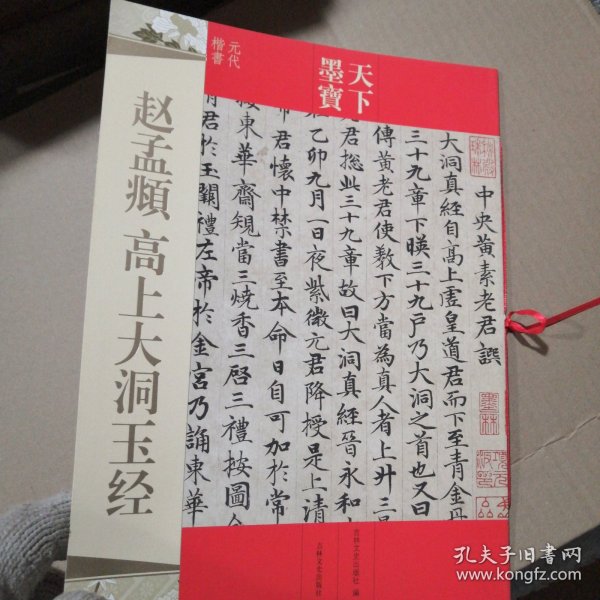 元代
楷書
天下
墨寶
赵孟頫 高上大洞玉经
中央黄素老君譔
大洞真經自高上虛皇道君而下至青金丹
三十九章下暎三十九戶乃大洞之首也又曰
傳黄老君使教下方當為真人者上升三
元君揔此三十九章故曰大洞真經晉永和
乙卯九月一日夜紫微元君降授是上清
帝君懷中禁書至本命日自可加於常
按東華齋䂓當三燒香三啓三禮按圖
請君於玉闕禮左帝於金宮乃誦東華
墨林
吉林文史出版社 编
吉林文史出版社
孔夫子旧书网
www.kongfz.com